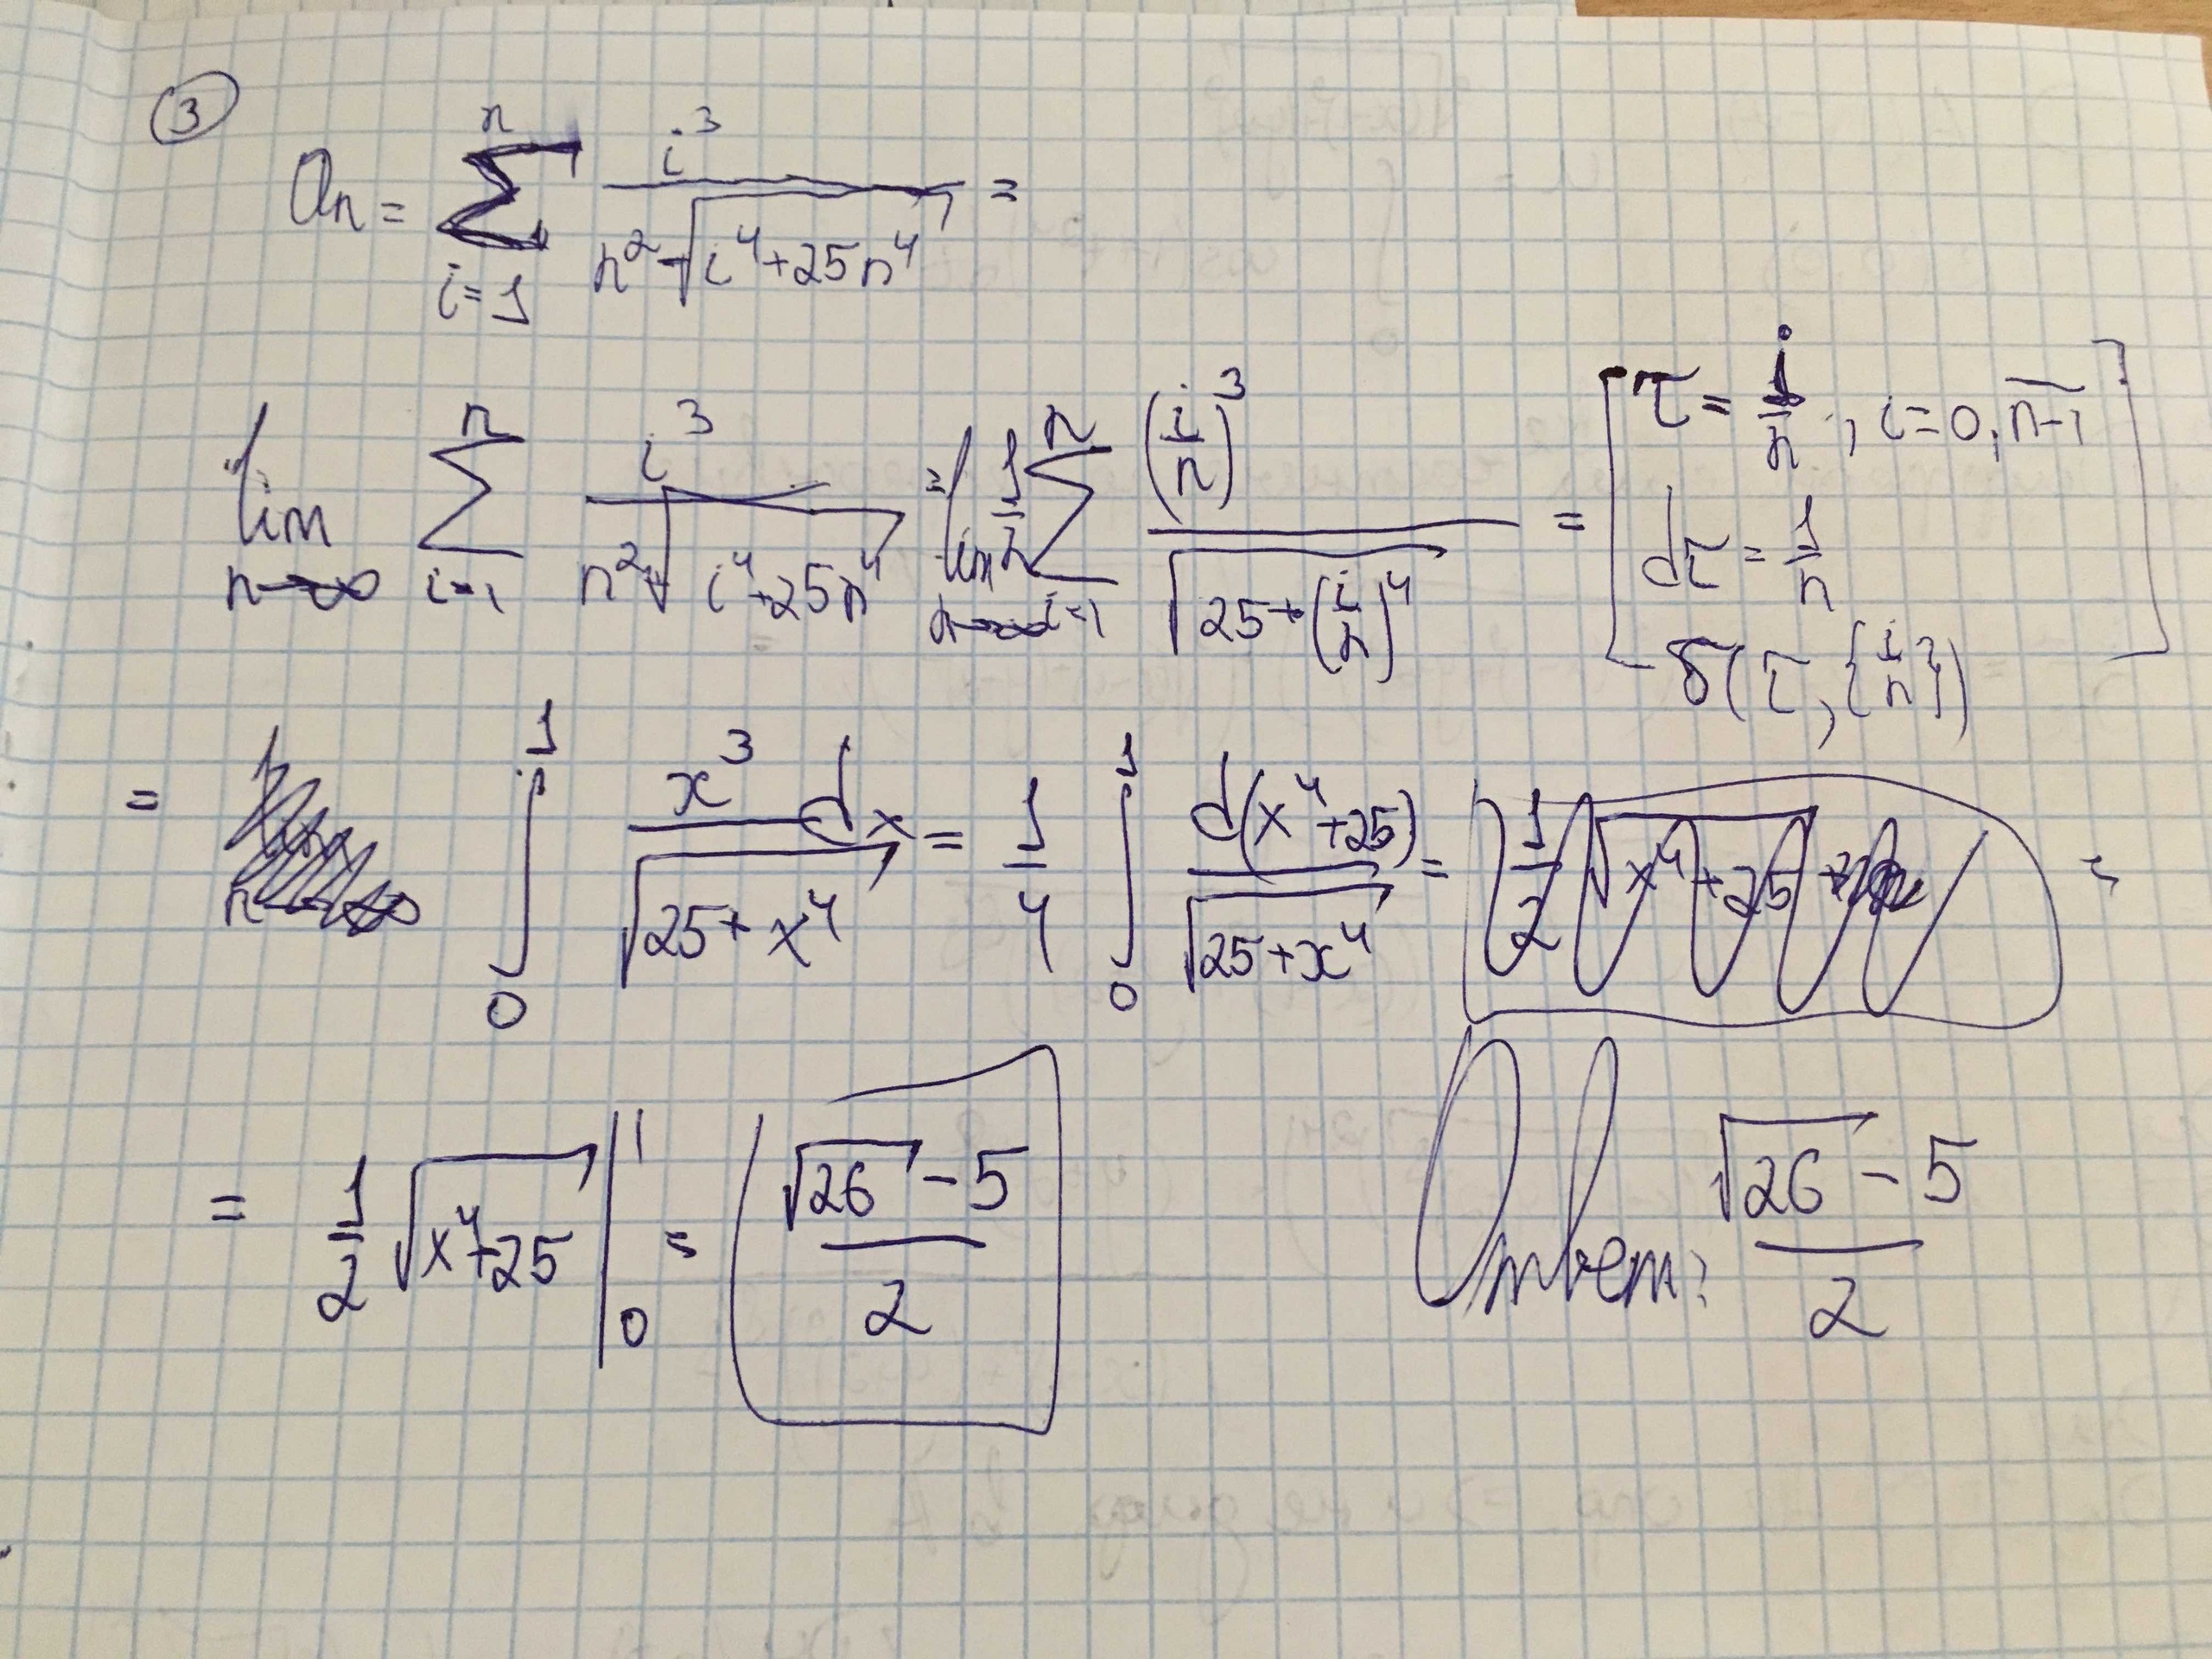 ③
a_n = \sum_{i=1}^{n} \frac{i^3}{n^2 \sqrt{i^4+25n^4}} =
\lim_{n→∞} \sum_{i=1}^{n} \frac{i^3}{n^2 \sqrt{i^4+25n^4}} = \lim_{n→∞} \frac{1}{n} \sum_{i=1}^{n} \frac{(\frac{i}{n})^3}{\sqrt{25+(\frac{i}{n})^4}} = [ τ = \frac{i}{n}, i=0,\overline{n-1}
dτ = \frac{1}{n}
σ(τ, {\frac{i}{n}}) ]
= \int_0^1 \frac{x^3 dx}{\sqrt{25+x^4}} = \frac{1}{4} \int_0^1 \frac{d(x^4+25)}{\sqrt{25+x^4}} = \frac{1}{2} \sqrt{x^4+25} =
= \frac{1}{2} \sqrt{x^4+25} |_0^1 = \frac{\sqrt{26}-5}{2}
Ответ: \frac{\sqrt{26}-5}{2}